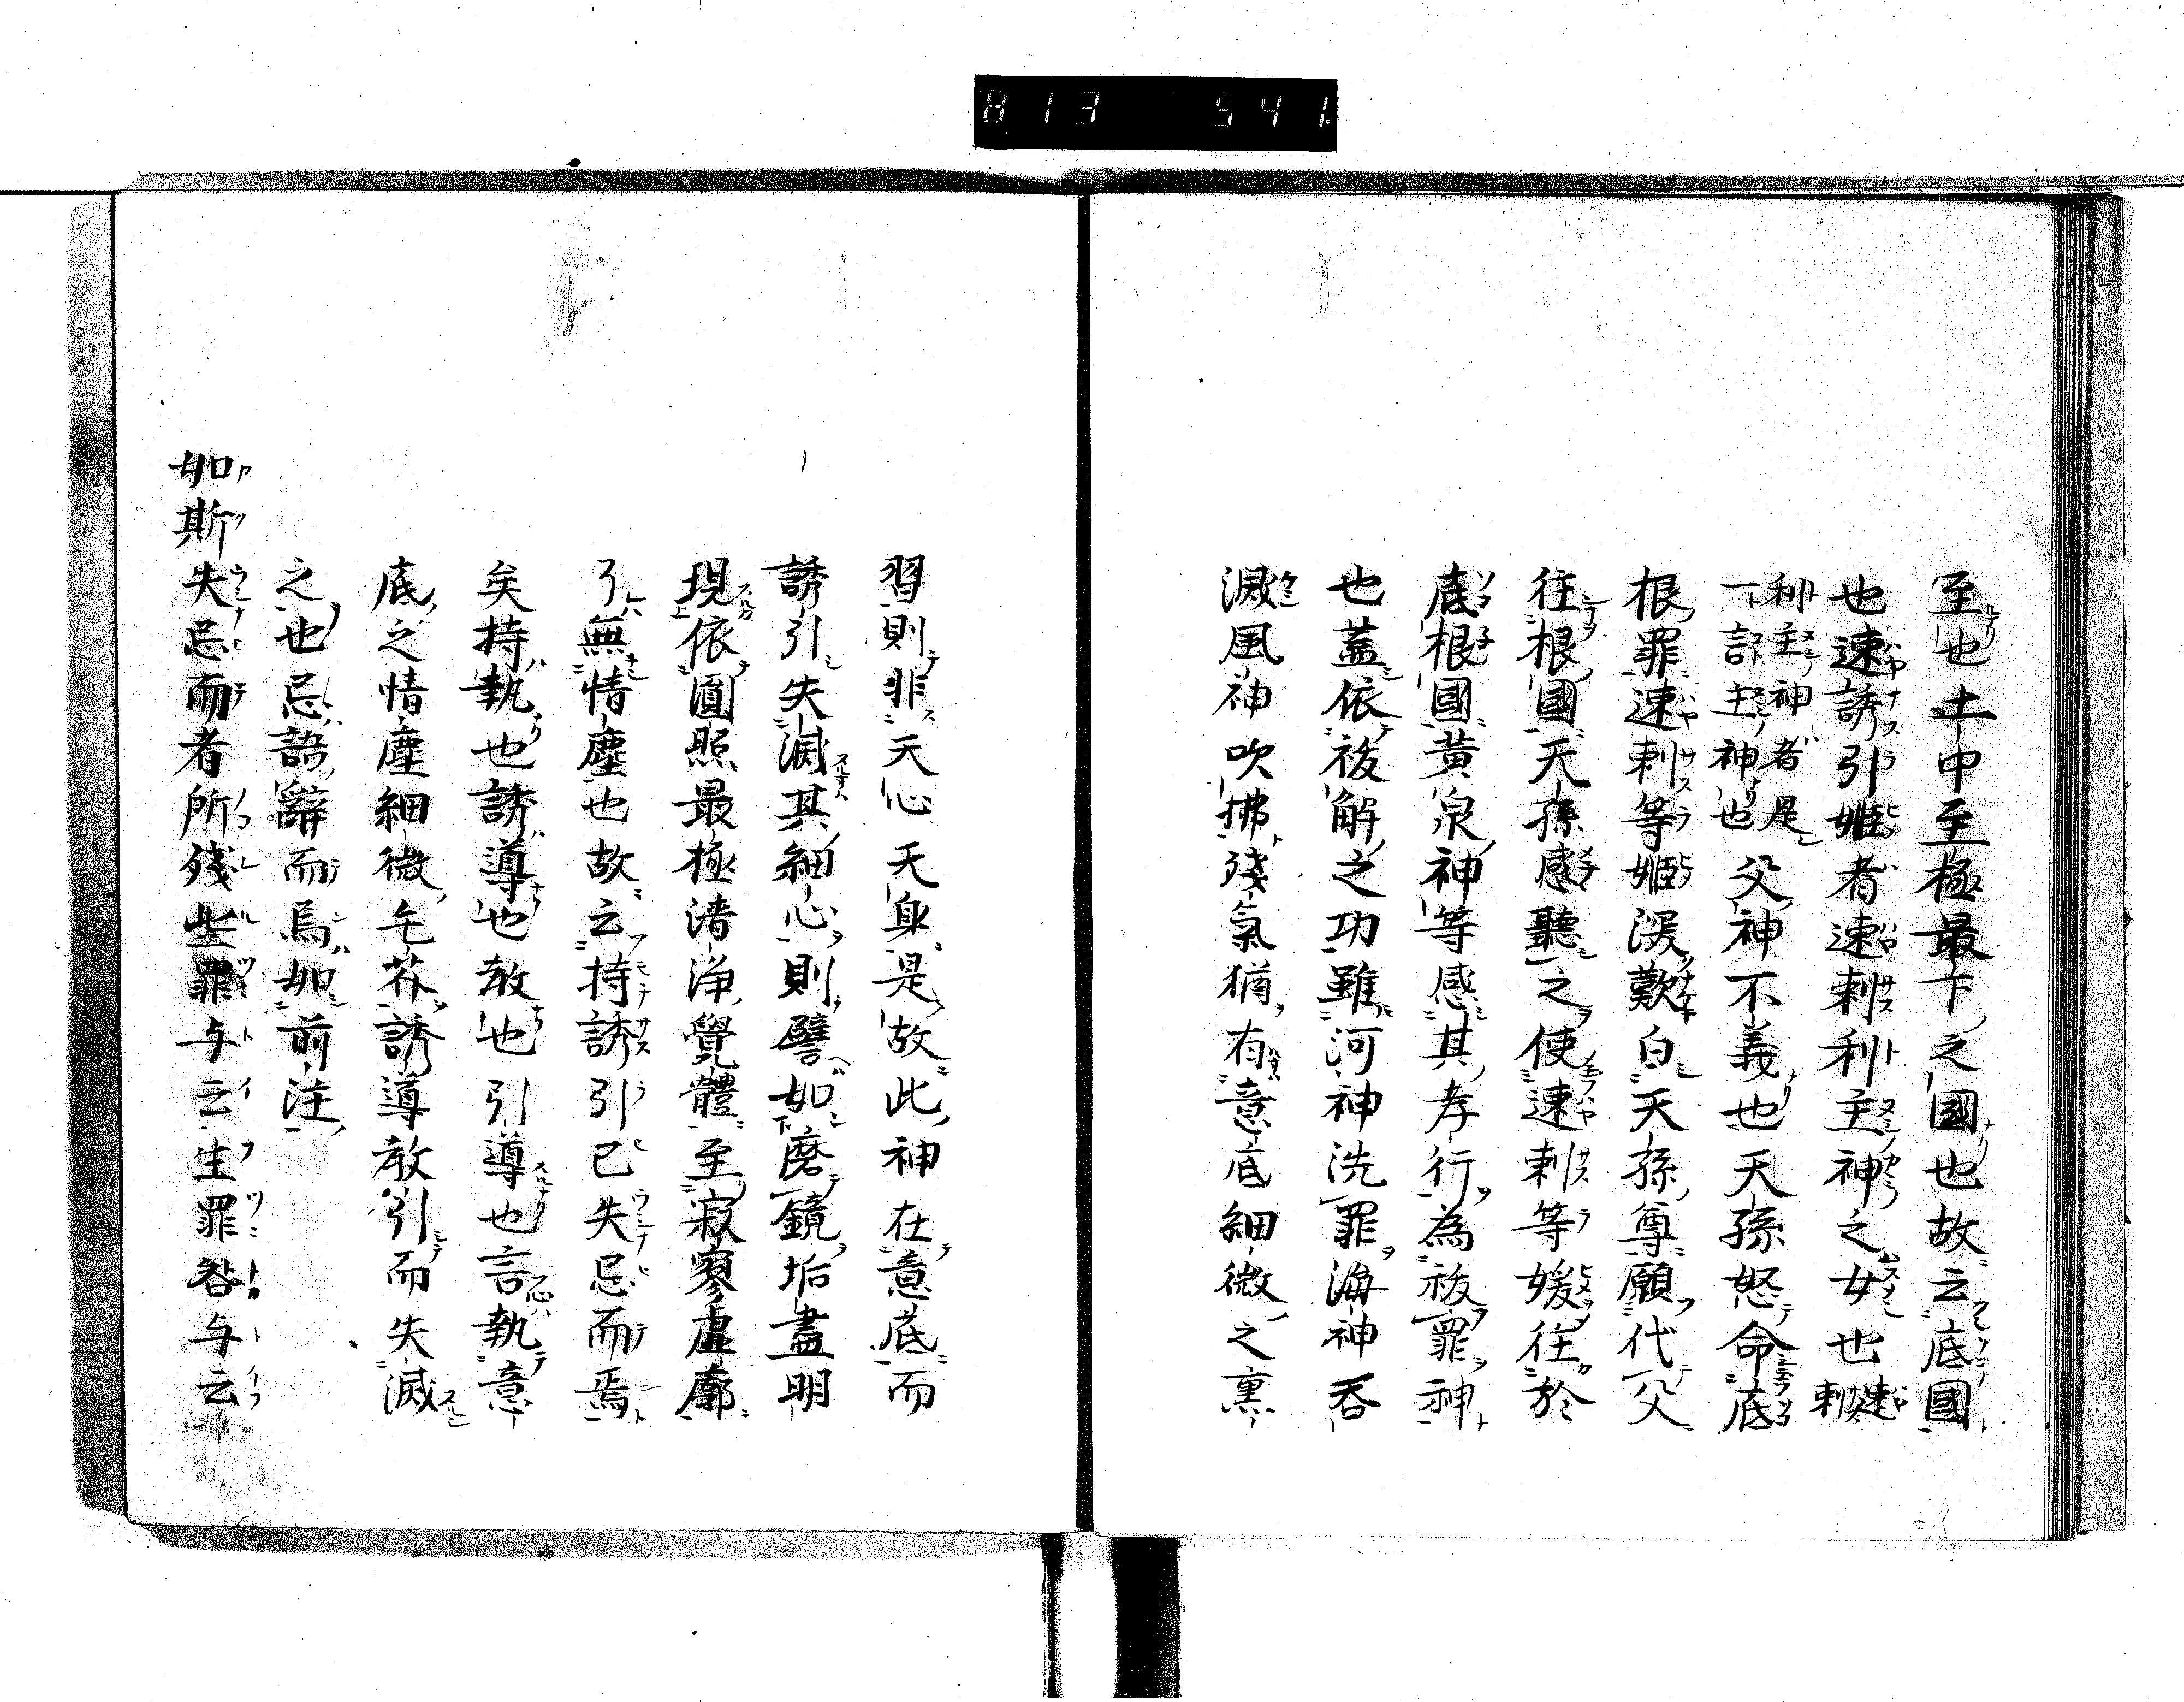 813 541
至也土中至極最下之國也故云底國
也速誘引姬者速刺利主神之女也速刺
利主神者是
一言主神也父神不義也天孫怒命底
根罪速刺等姬淚歎白天孫尊願代父
往根國天孫感聽之使速刺等媛往於
底根國黃泉神等感其孝行為祓罪神
也蓋依祓解之功雖河神洗罪海神呑
滅風神吹拂殘氣猶有意底細微之裏
習則非天心天身是故此神在意底而
誘引失滅其細心則譬如磨鏡垢盡明
現依圓照最極清淨覺體至寂寥虛廓
了無情塵也故云持誘引已失忌而焉
矣持執也誘導也教也引導也言執意
底之情塵細微乞芥誘導教引而失滅
之也忌語辭而焉如前注
如斯失忌而者所殘些罪与云生罪咎与云